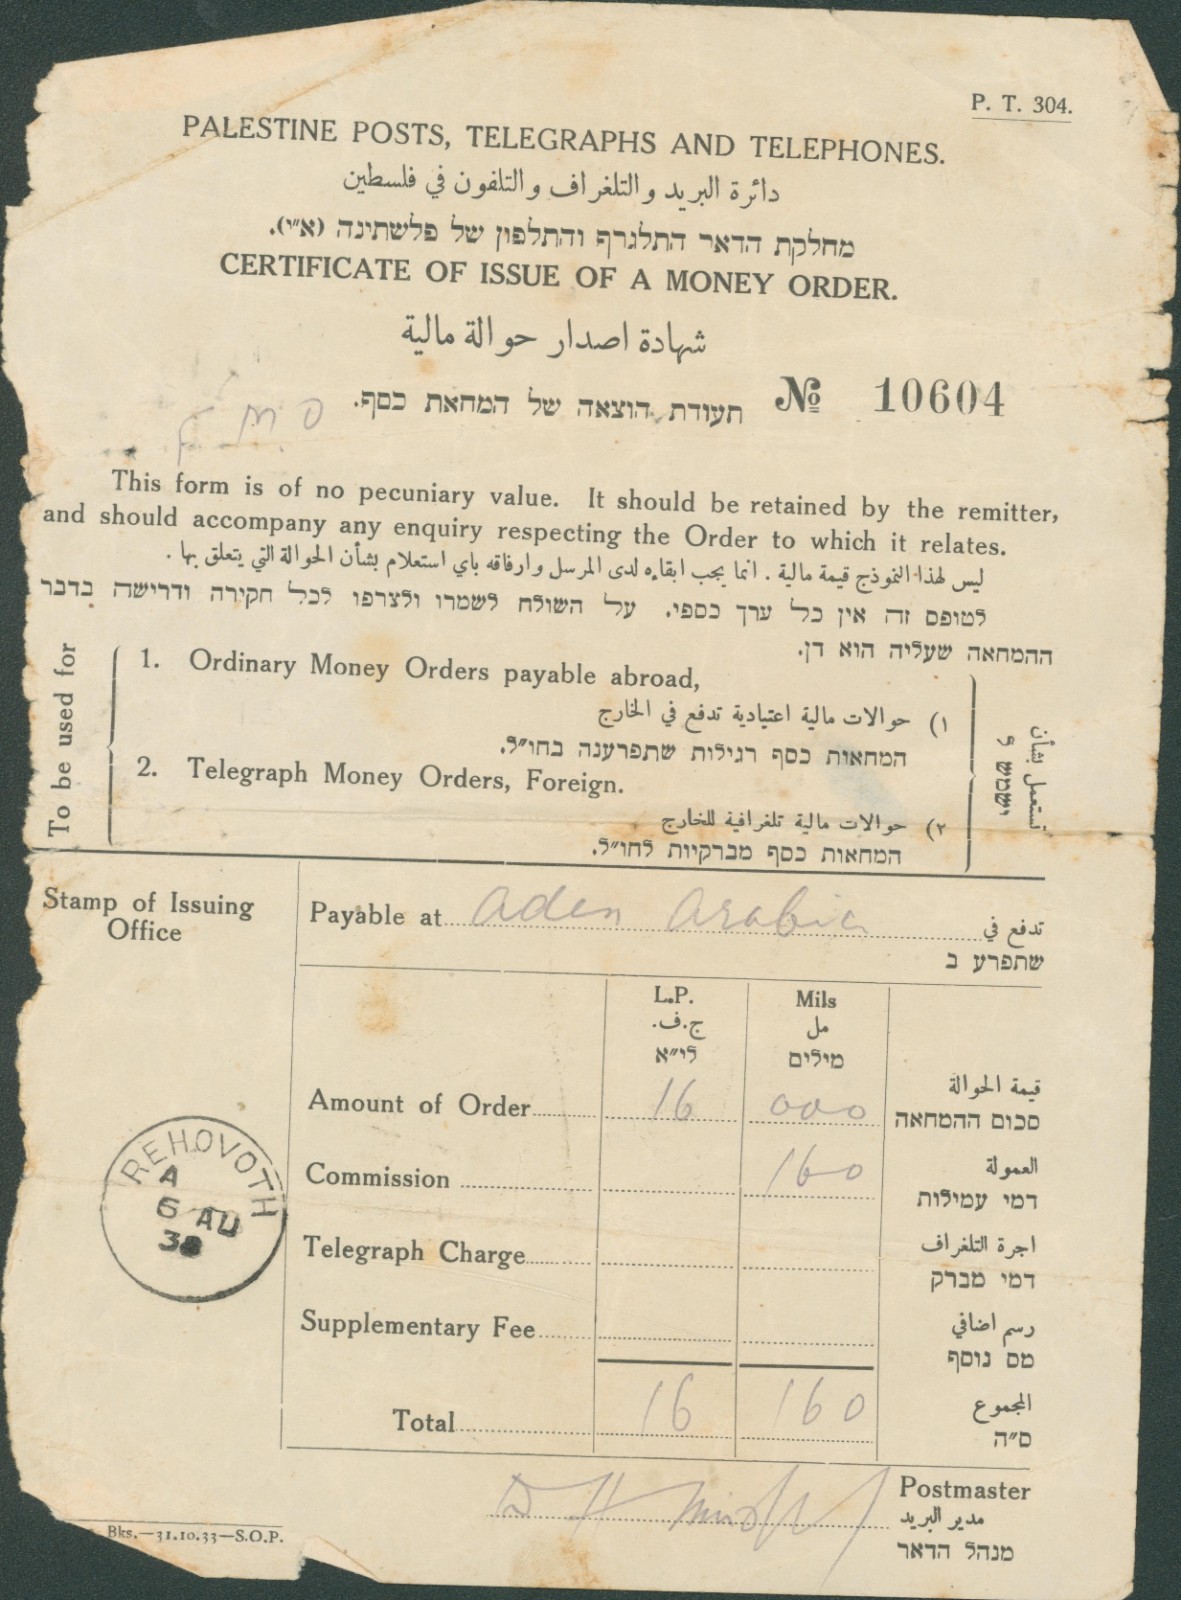 P. T. 304.
PALESTINE POSTS, TELEGRAPHS AND TELEPHONES.
دائرة البريد والتلغراف والتلفون في فلسطين
מחלקת הדאר התלגרף והתלפון של פלשתינה (א״י).
CERTIFICATE OF ISSUE OF A MONEY ORDER.
شهادة اصدار حوالة مالية
תעודת הוצאה של המחאת כסף. № 10604
F M O
This form is of no pecuniary value. It should be retained by the remitter,
and should accompany any enquiry respecting the Order to which it relates.
ليس لهذا النموذج قيمة مالية . انما يجب ابقاءه لدى المرسل وارفاقه باي استعلام بشأن الحوالة التي يتعلق بها .
לטופס זה אין כל ערך כספי. על השולח לשמרו ולצרפו לכל חקירה ודרישה בדבר
ההמחאה שעליה הוא דן.
To be used for
1. Ordinary Money Orders payable abroad,
١) حوالات مالية اعتيادية تدفع في الخارج
המחאות כסף רגילות שתפרענה בחו״ל.
2. Telegraph Money Orders, Foreign.
٢) حوالات مالية تلغرافية للخارج
המחאות כסף מברקיות לחו״ל.
تستعمل بشأن
ישמש ל
Stamp of Issuing
Office
Payable at Aden Arabia تدفع في
שתפרע ב
L.P. Mils
ج.ف. مل
לי״א מילים
قيمة الحوالة
Amount of Order 16 000 סכום ההמחאה
العمولة
Commission 160 דמי עמילות
اجرة التلغراف
Telegraph Charge דמי מברק
رسم اضافي
Supplementary Fee מס נוסף
المجموع
Total 16 160 ס״ה
REHOVOTH
A
6 AU
38
Postmaster
مدير البريد
מנהל הדאר
Bks.—31.10.33—S.O.P.